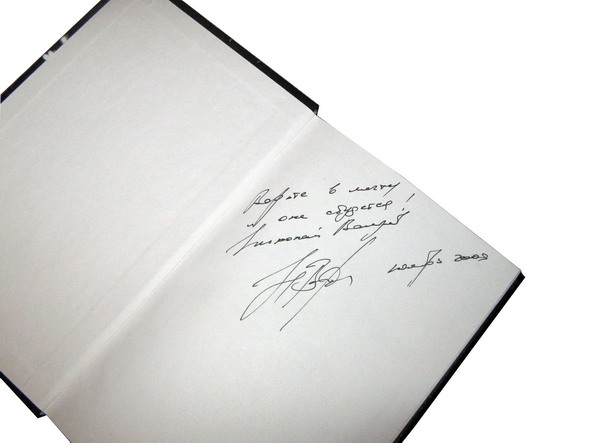 Верьте в мечту
и она сбудется!
Николай Валуев
ноябрь 2009